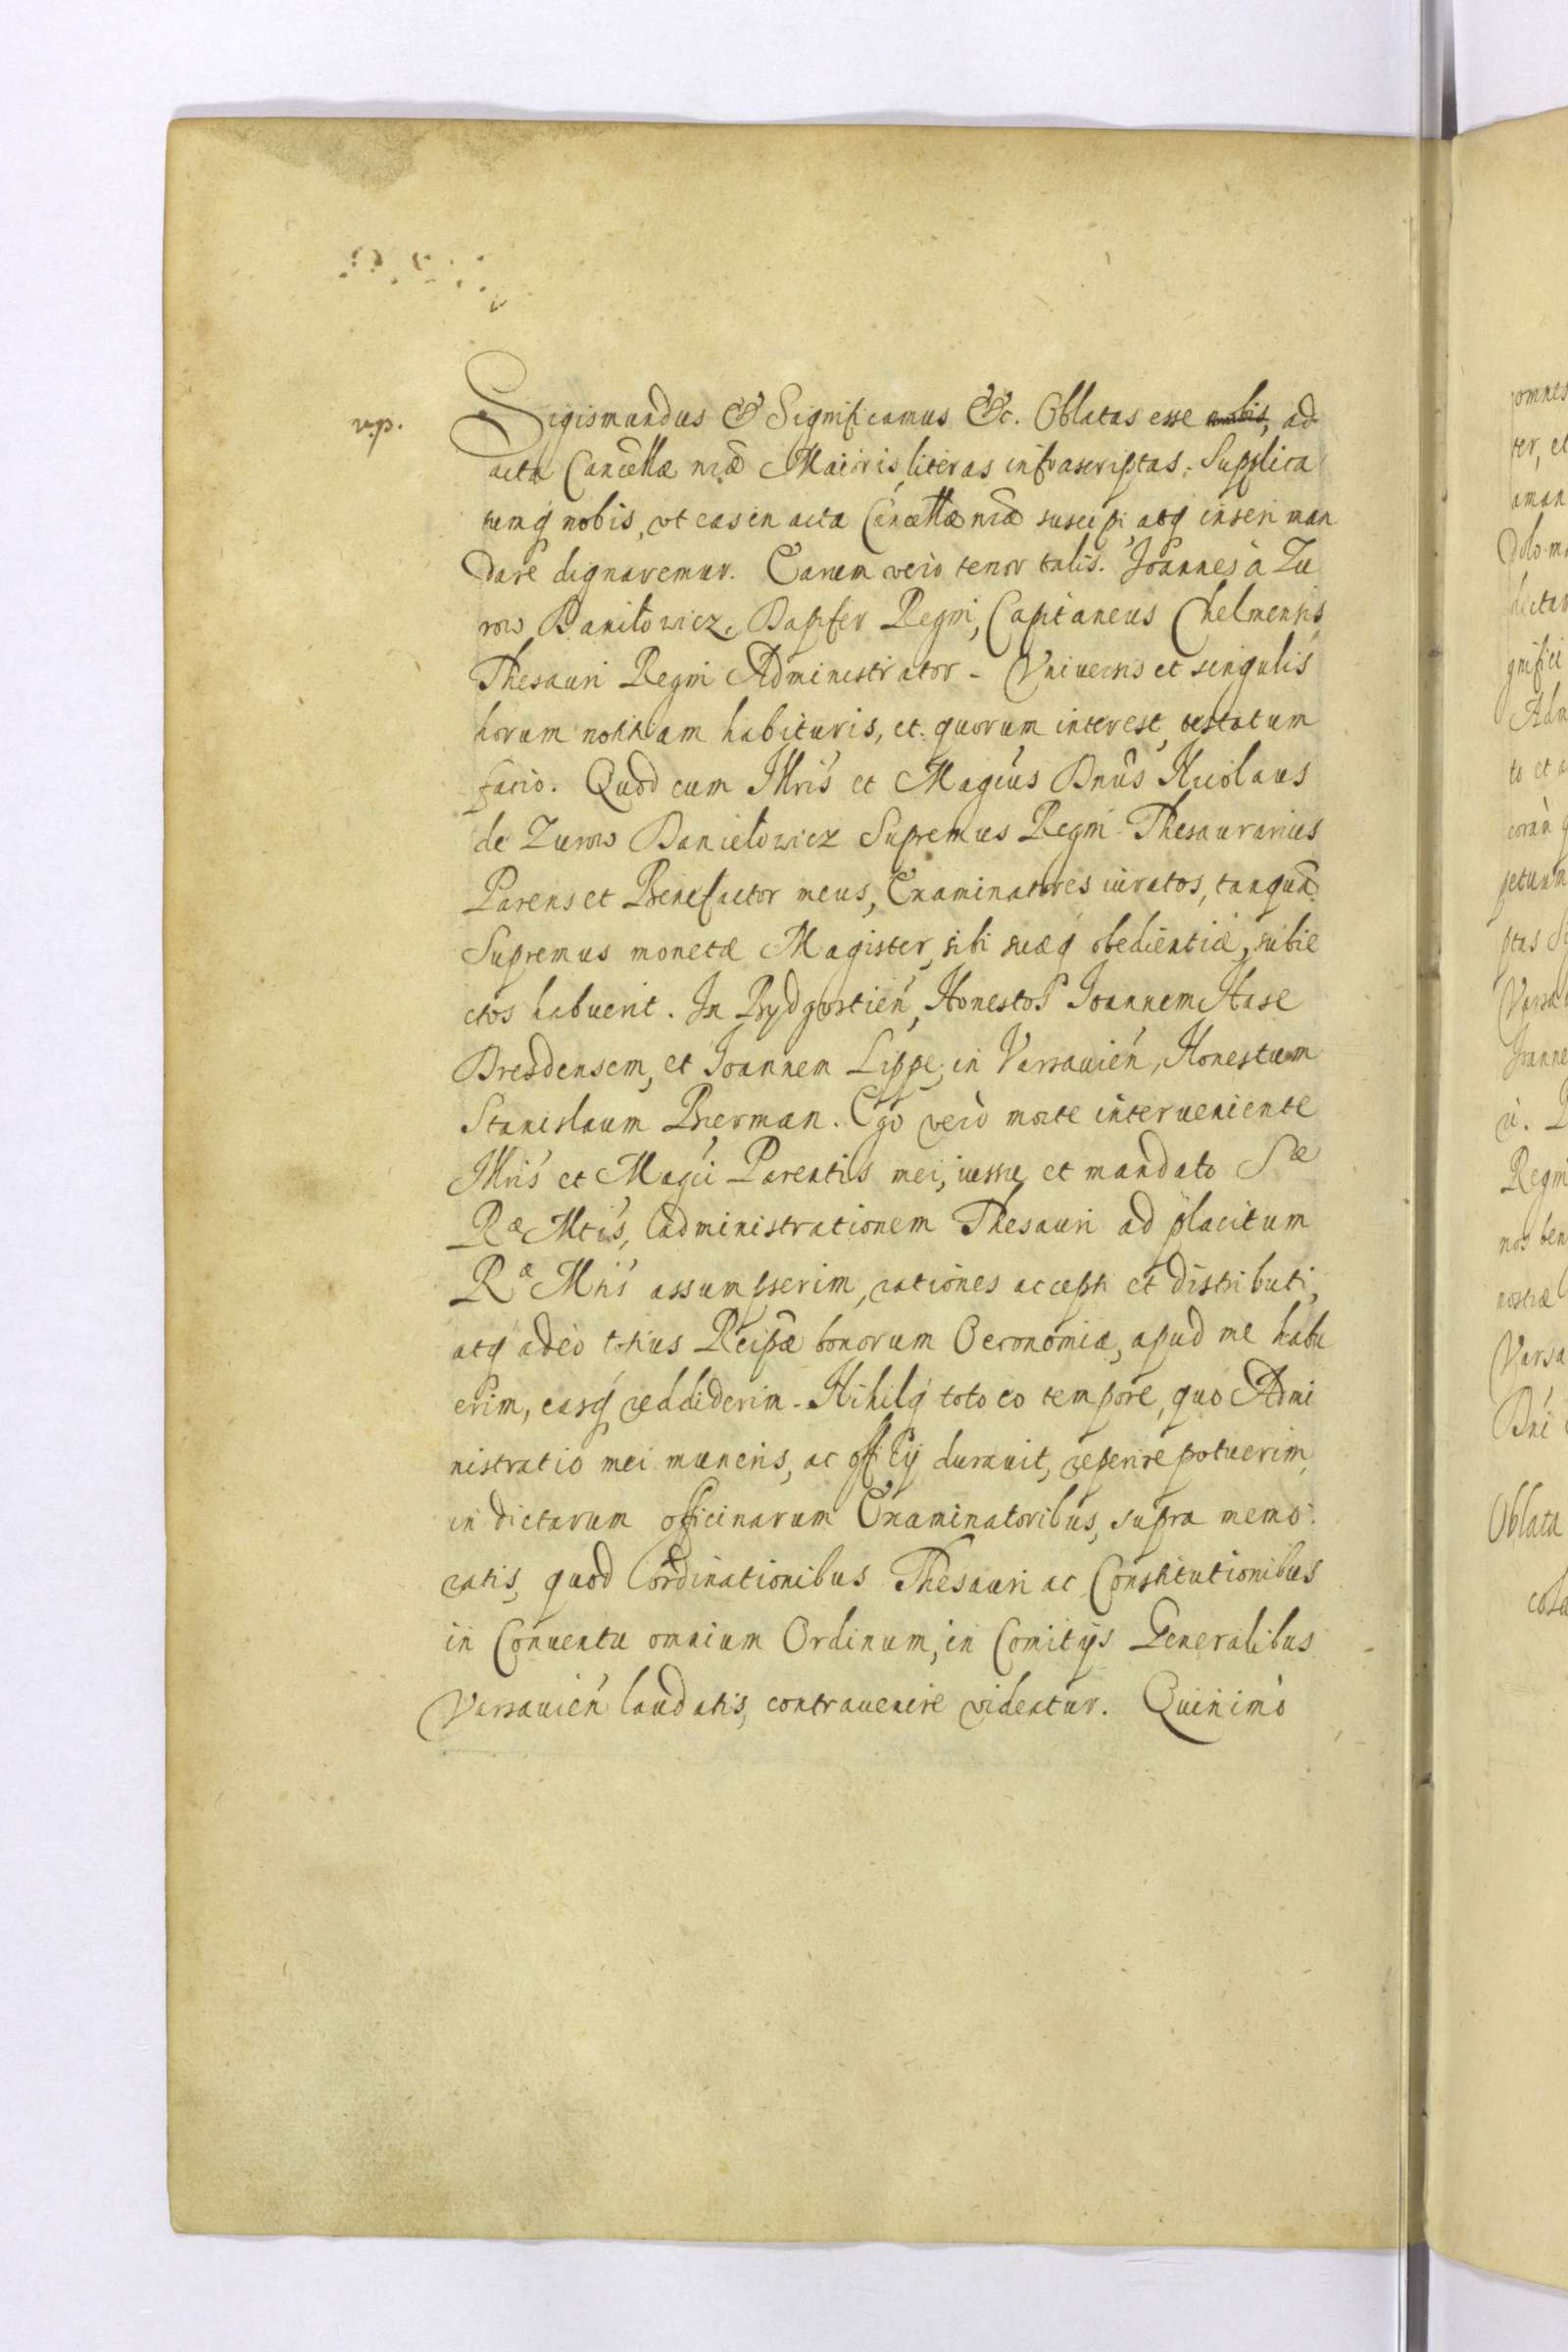 Sigismundus &c Significamus &c. Oblatas esse nobis, ad
acta Cancellæ nræ Maioris, literas infrascriptas. Supplica
tumq nobis, vt eas in acta Cancellæ nræ suscipi, atq inseri man
dare dignaremur. Earum vero tenor talis. Joannes à Zu
row Daniłowicz, Dapifer Regni, Capitaneus Chelmensis
Thesauri Regni Administrator - Vniuersis et singulis
horum notitiam habituris, et quorum interest, testatum
facio. Quod cum Illris et Magcus Dnus Nicolaus
de Zurow Daniełowicz Supremus Regni Thesaurarius
Parens et Benefactor meus, Examinatores iuratos, tanquã
Supremus monetæ Magister, sibi suæq obedientiæ, subie
ctos habuerit. In Bydgostien, Honestos Joannem Hase
Dresdensem, et Joannem Lippe, in Varsauien, Honestum
Stanislaum Berman. Ego verò morte interueniente
Illris et Magci Parentis mei, iussu et mandato Sæ
Ræ Mtis, administrationem Thesauri ad placitum
Ræ Mtis assumpserim, rationes accepti et distributi,
atq adeò totius Reipæ bonorum Oeconomiæ, apud me habu
erim, easq reddiderim. Nihilq toto eo tempore, quo Admi
nistratio mei muneris, ac officij durauit, reperire potuerim
in dictarum officinarum Examinatoribus, supra memo
ratis, quod Ordinationibus Thesauri ac Constitutionibus
in Conuentu omnium Ordinum, in Comitijs Generalibus
Varsauien laudatis, contrauenire videatur. Quinimò
omnes
ter, et
aman
dolo m
gnifici
Adm
to et a
coràn
ptas
Varsa
Joanne
Regni
nos ben
nostræ
Varsa
Dni
Oblata